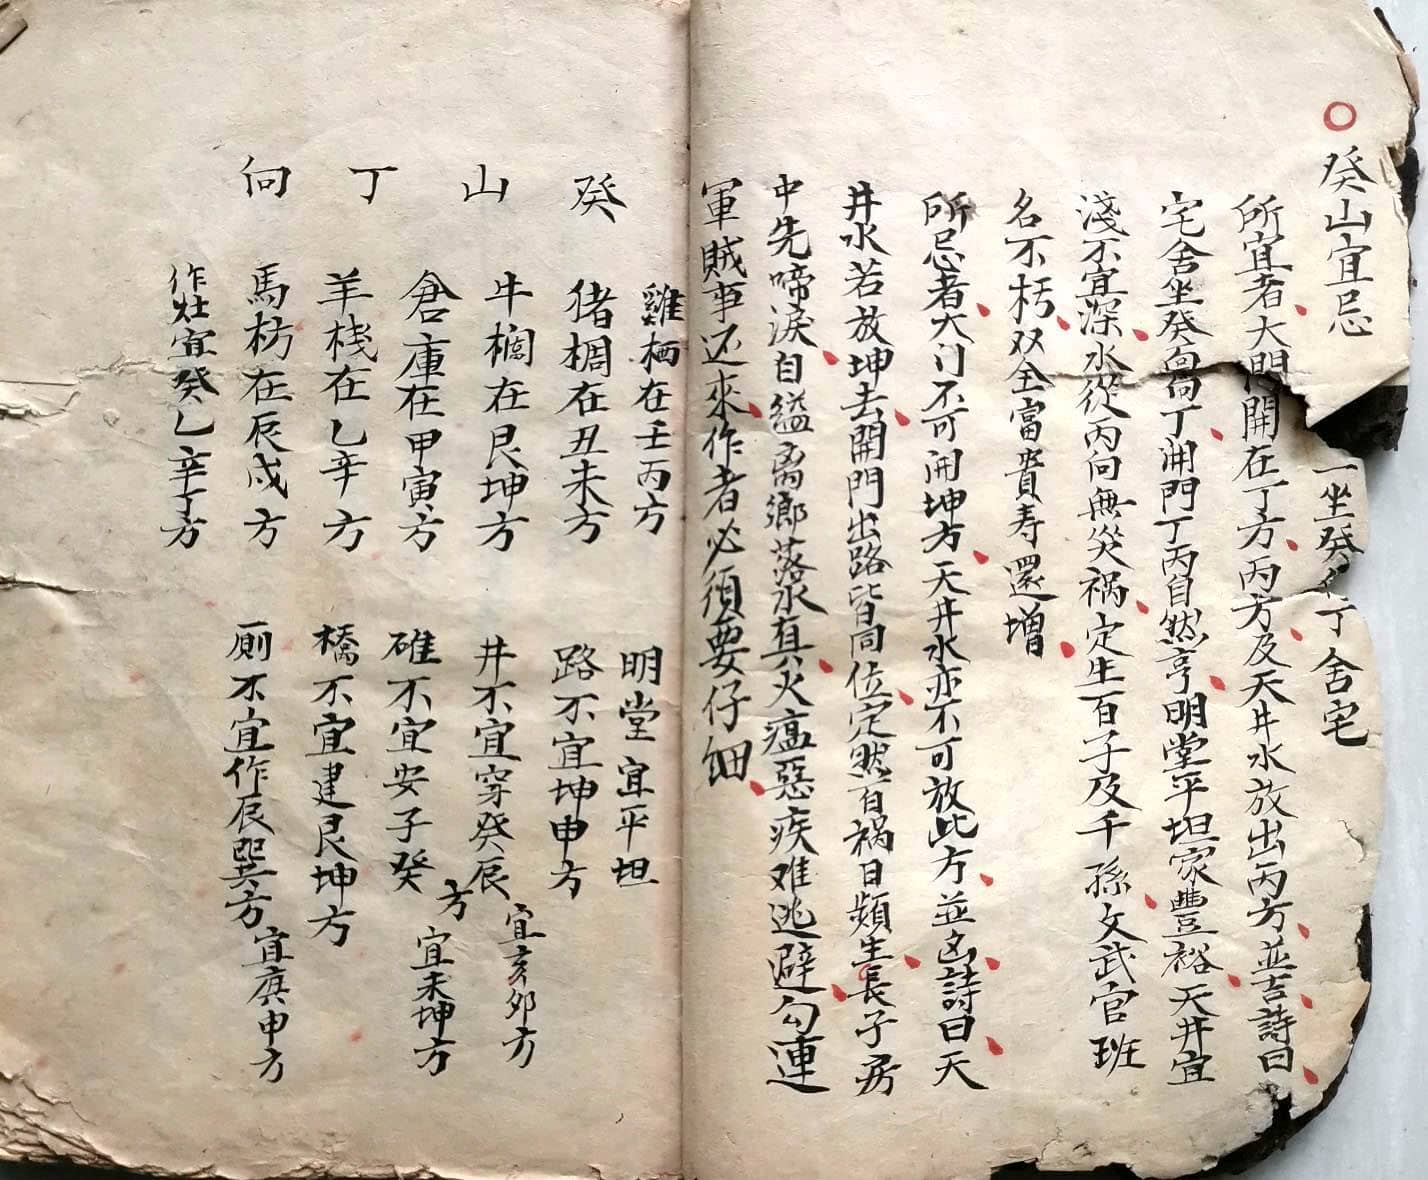 癸山宜忌
一坐癸向丁舍宅
所宜者大門開在丁方丙方及天井水放出丙方並吉詩曰
宅舍坐癸向丁開門丁丙自然亨明堂平坦家豐裕天井宜
淺不宜深水從丙向無災禍定生百子及千孫文武官班
名不朽双全富貴寿還增
所忌者大门不可開坤方天井水亦不可放此方並凶詩曰天
井水若放坤去開門出路皆同位定然百禍日頻生長子房
中先啼淚自縊离鄉落水真火瘟惡疾难逃避勾連
軍賊事还來作者必須要仔細
癸山丁向
雞栖在壬丙方
猪椆在丑未方
牛欄在艮坤方
倉庫在甲寅方
羊棧在乙辛方
馬枋在辰戌方
作灶宜癸乙辛丁方
明堂宜平坦
路不宜坤申方
井不宜穿癸辰方宜亥卯方
碓不宜安子癸方宜未坤方
橋不宜建艮坤方
厠不宜作辰巽方宜庚申方